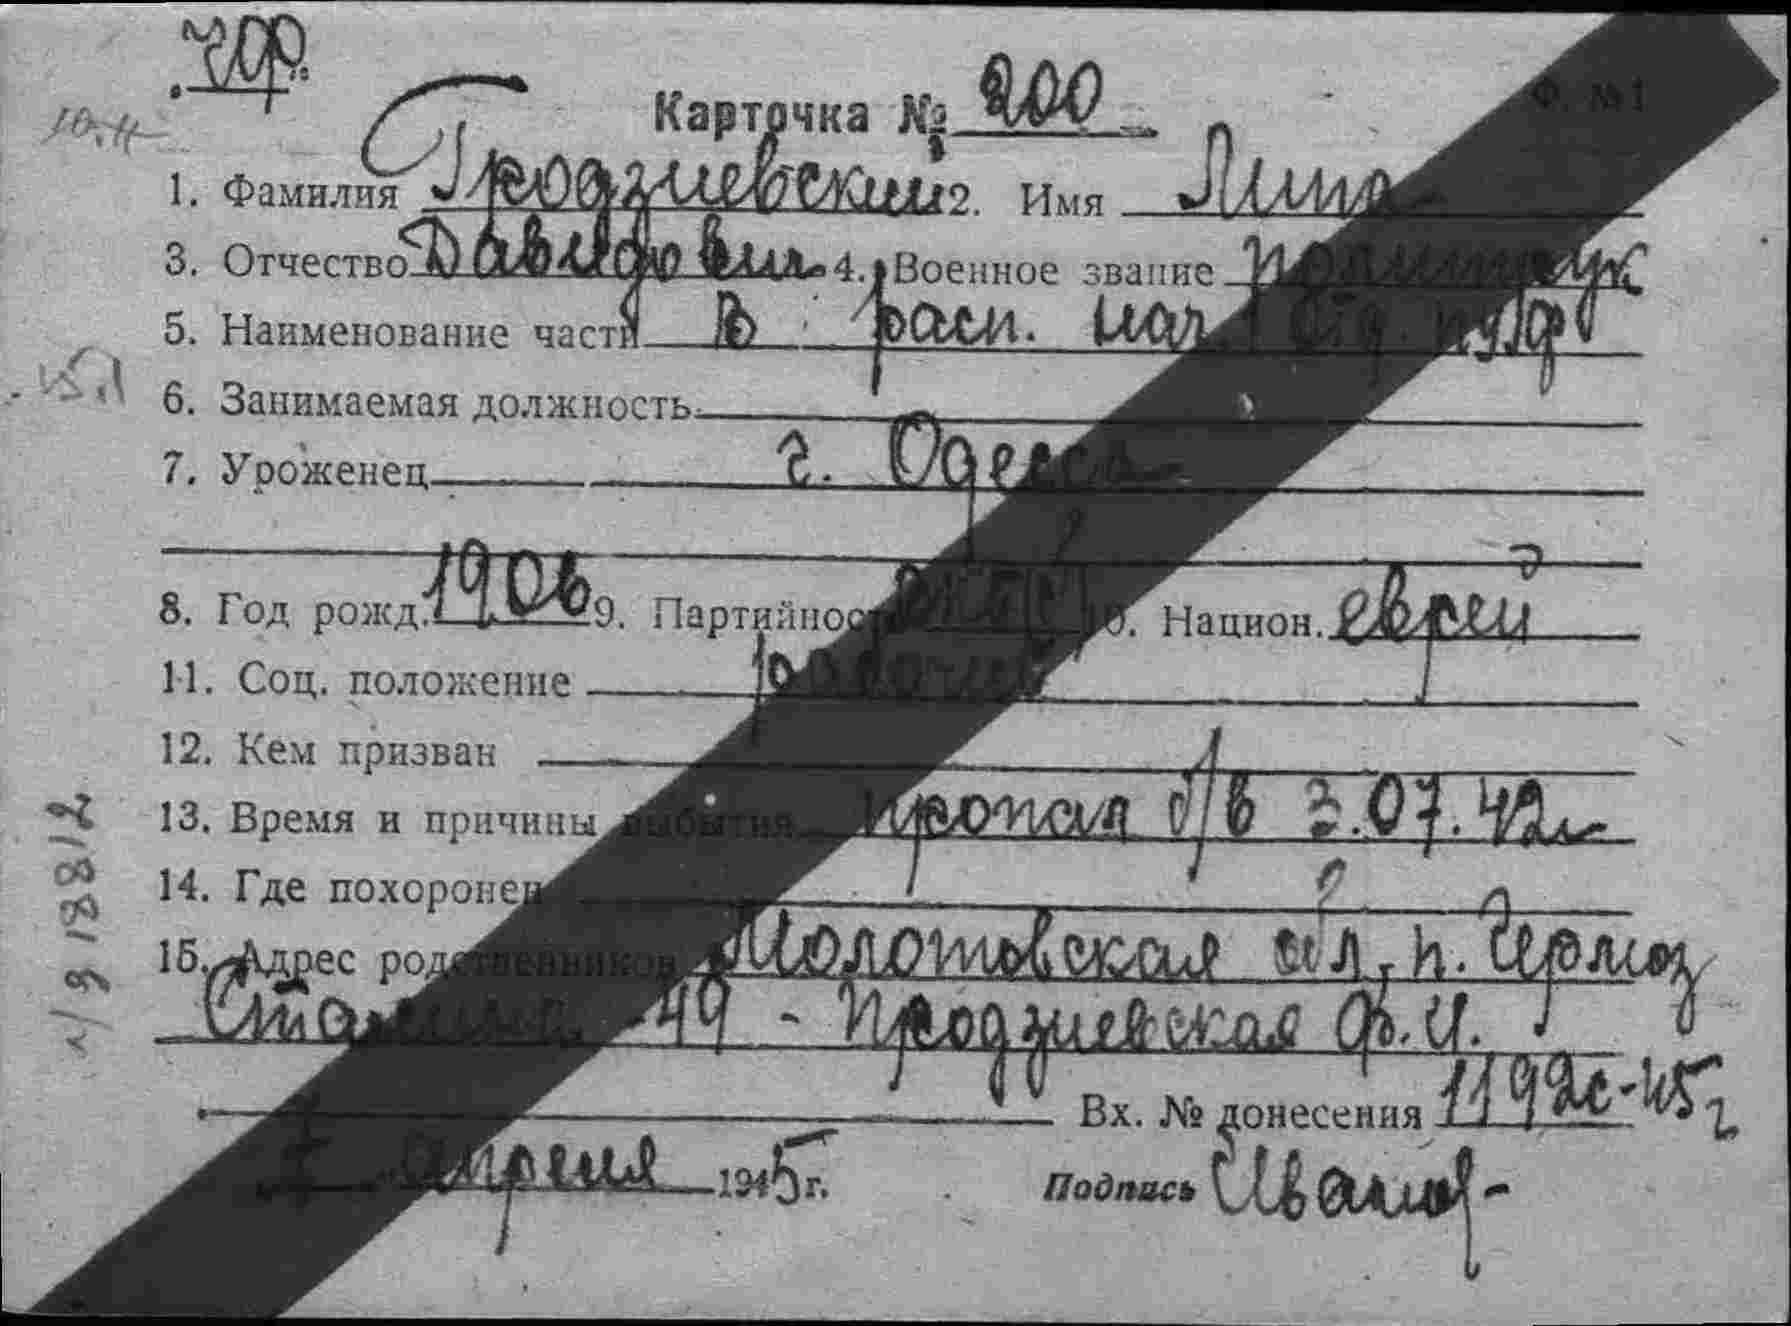 Карточка № 200
Ф. №1
1. Фамилия Гродзиевский 2. Имя
3. Отчество Давидович 4. Военное звание политрук
5. Наименование части В расп. нач.
6. Занимаемая должность
7. Уроженец г. Одесса
8. Год рожд. 1906 9. Партийност 10. Национ. еврей
11. Соц. положение рабочий
12. Кем призван
13. Время и причины выбытия пропал б/в 3.07.42г
14. Где похоронен
15. Адрес родственников Молотовская обл, п. Чермоз
49 - Гродзиевская Ф. И.
Вх. № донесения 1192с-45г
апреля 1945 г. Подпись
н/д 18812